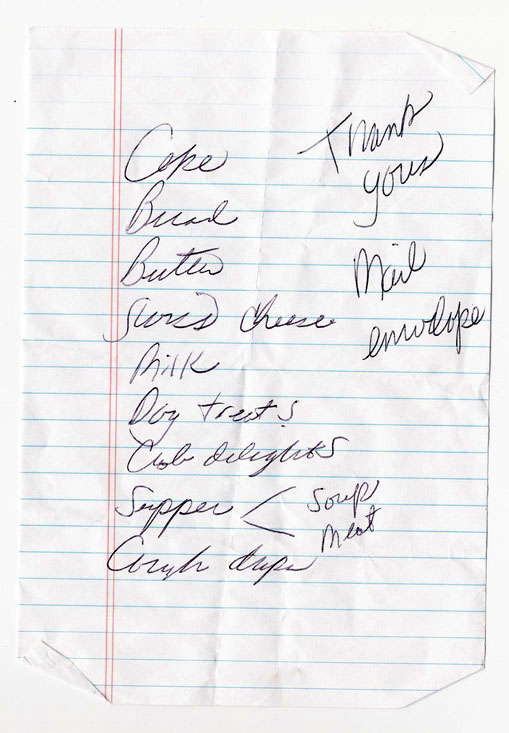 Coke
Bread
Butter
Swiss cheese
Milk
Dog treats
Crab delights
Supper < Soup
Meat
Cough drops
Thank
yous
Mail
envelope